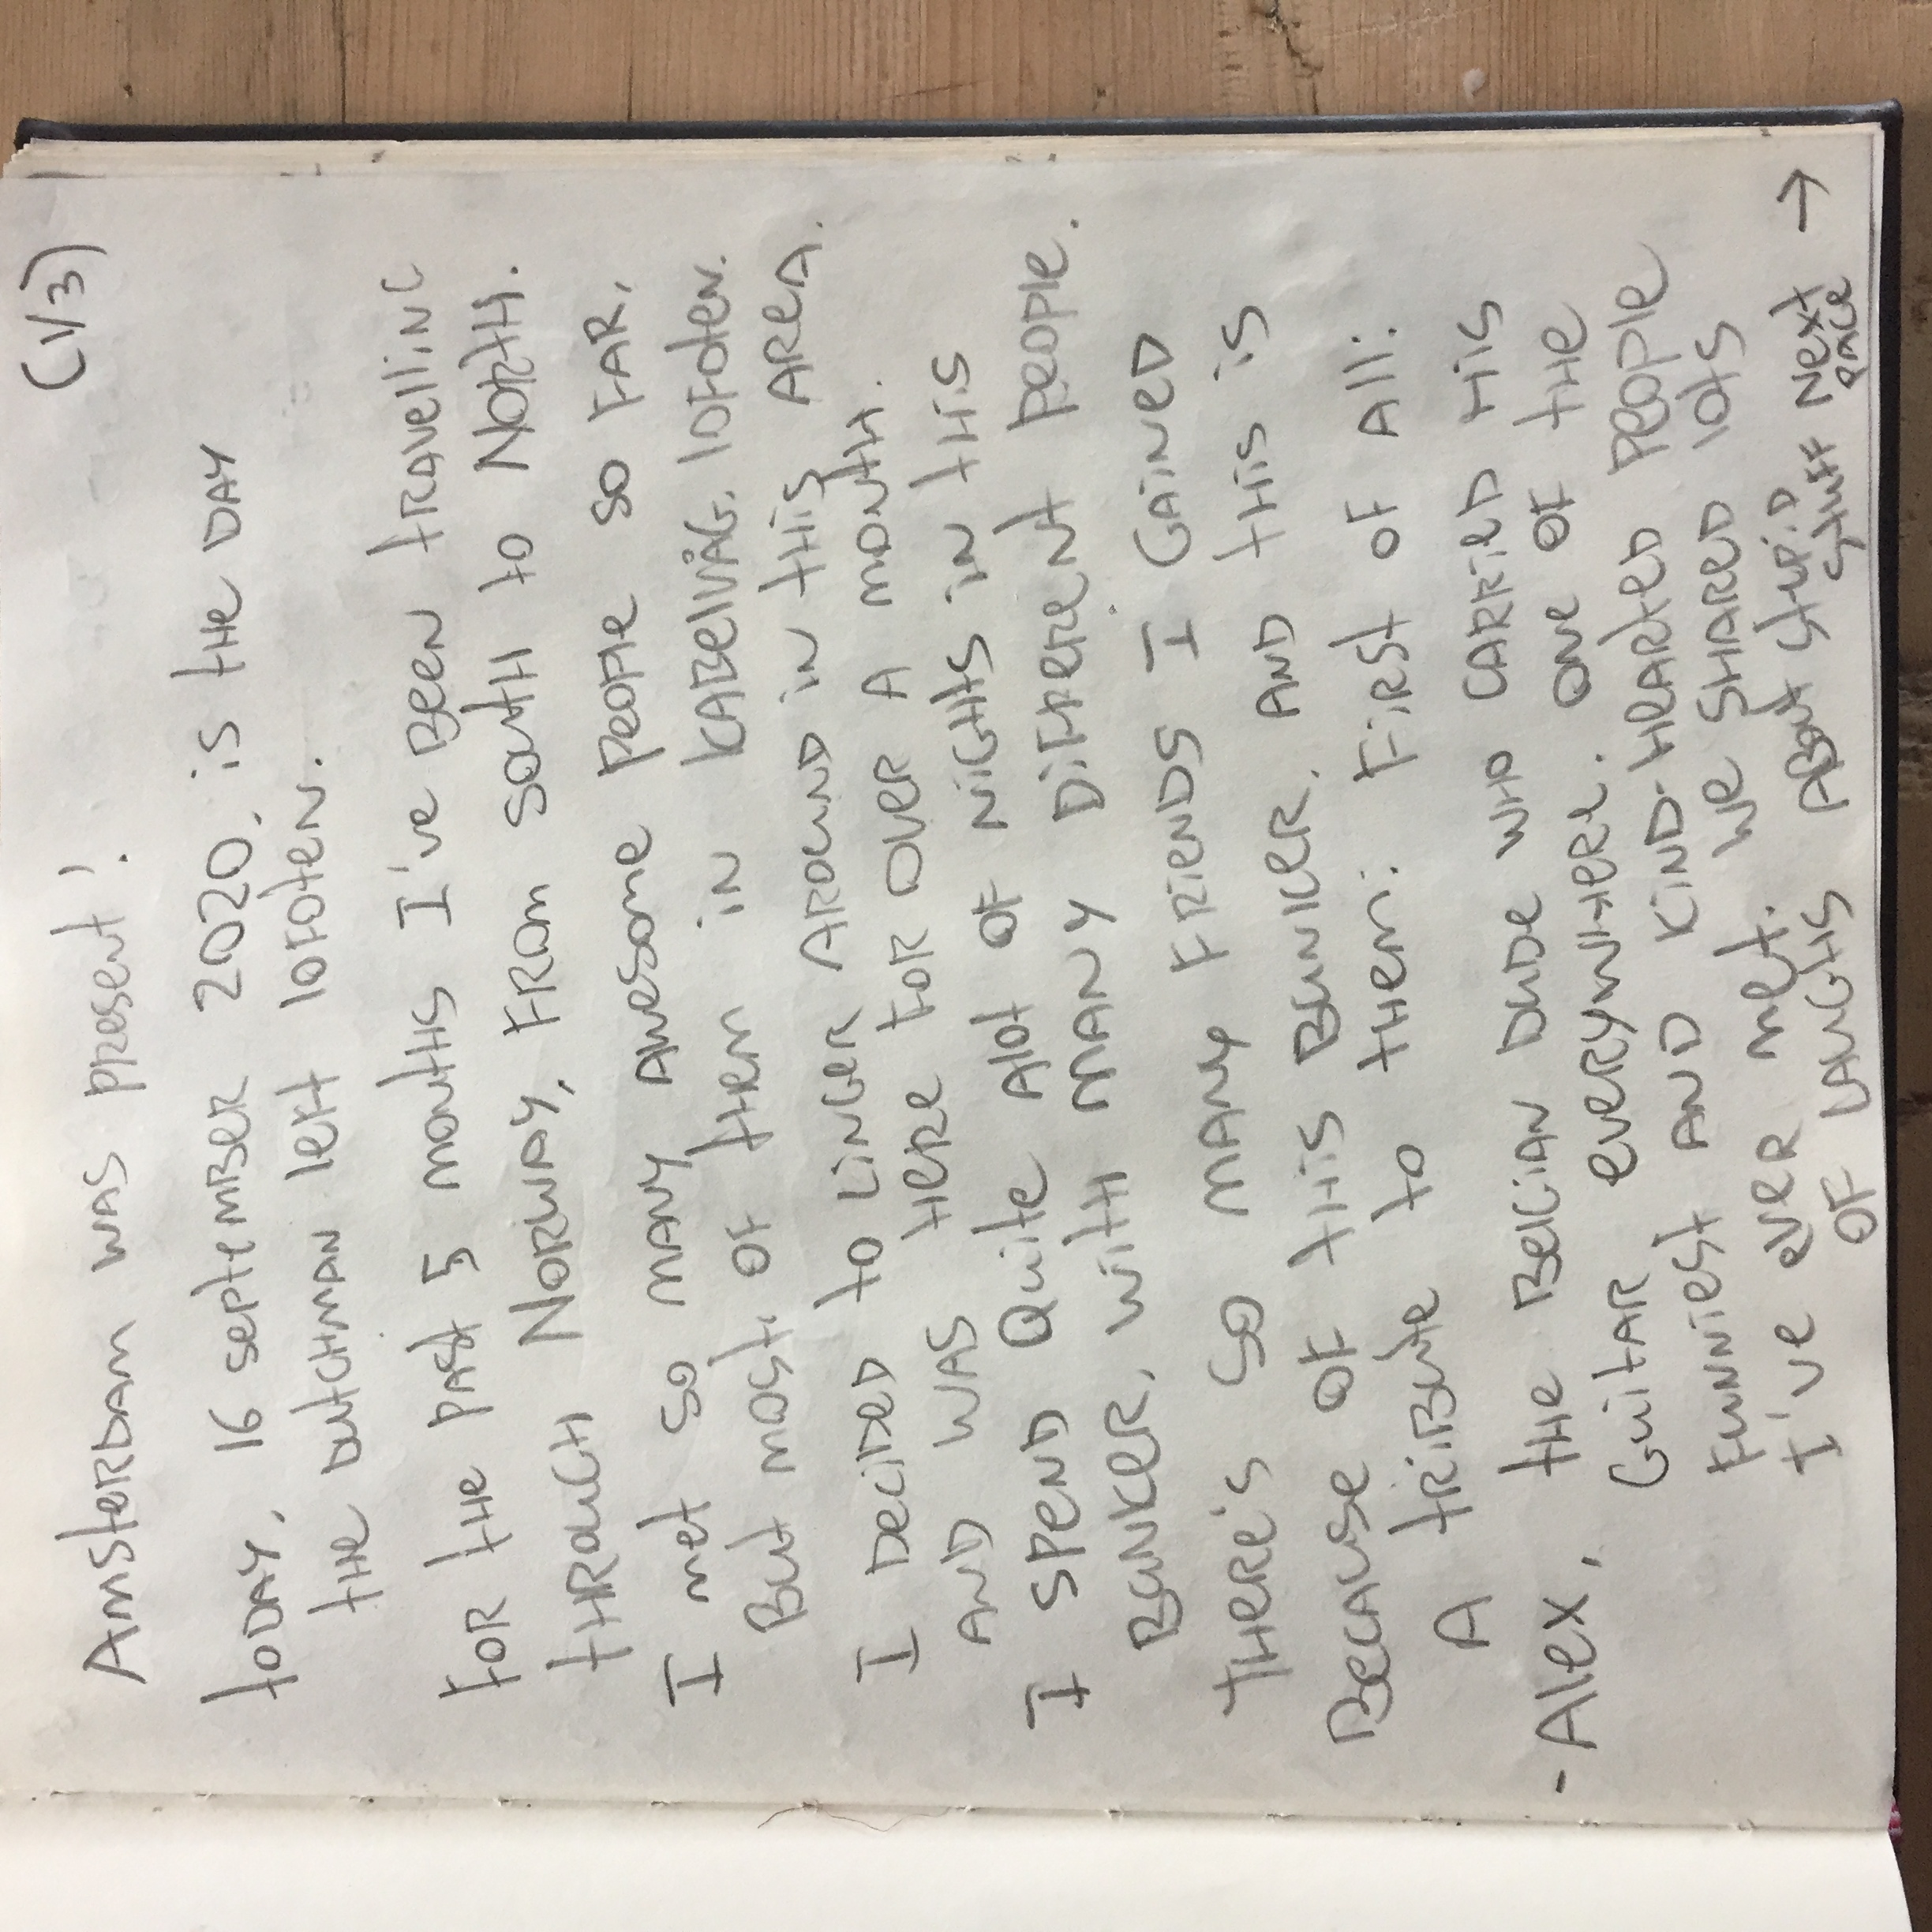 (1/3)
Amsterdam was present!
today, 16 september 2020, is the day
the dutchman left lofoten.
for the past 5 months I've been travelling
through Norway, from south to North.
I met so many awesome people so far,
But most of them in Kabelvåg, lofoten.
I decided to linger around in this area.
and was here for over a month.
I spend Quite alot of nights in this
Bunker, with many different people.
there's so many friends I gained
Because of this Bunker. and this is
a tribute to them. First of all:
- Alex, the Belgian dude who carried his
guitar everywhere. one of the
funniest and kind-hearted people
I've ever met. We shared lots
of laughs about stupid stuff next page →